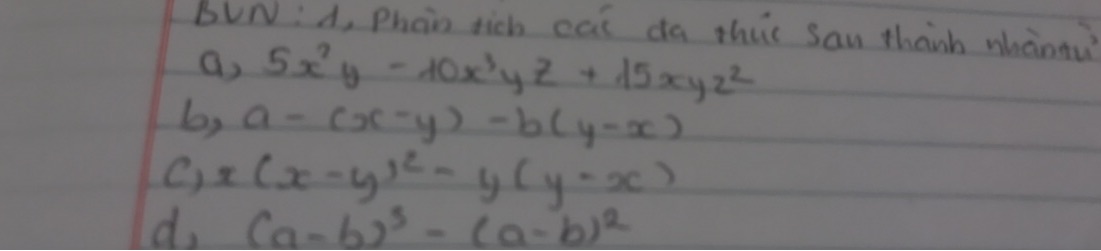 BVN: 1, Phân tích các đa thức sau thành nhân tử
a, 5x²y - 10x³yz + 15xyz²
b, a - (x-y) - b(y-x)
c, x(x-y)² - y(y-x)
d, (a-b)³ - (a-b)²